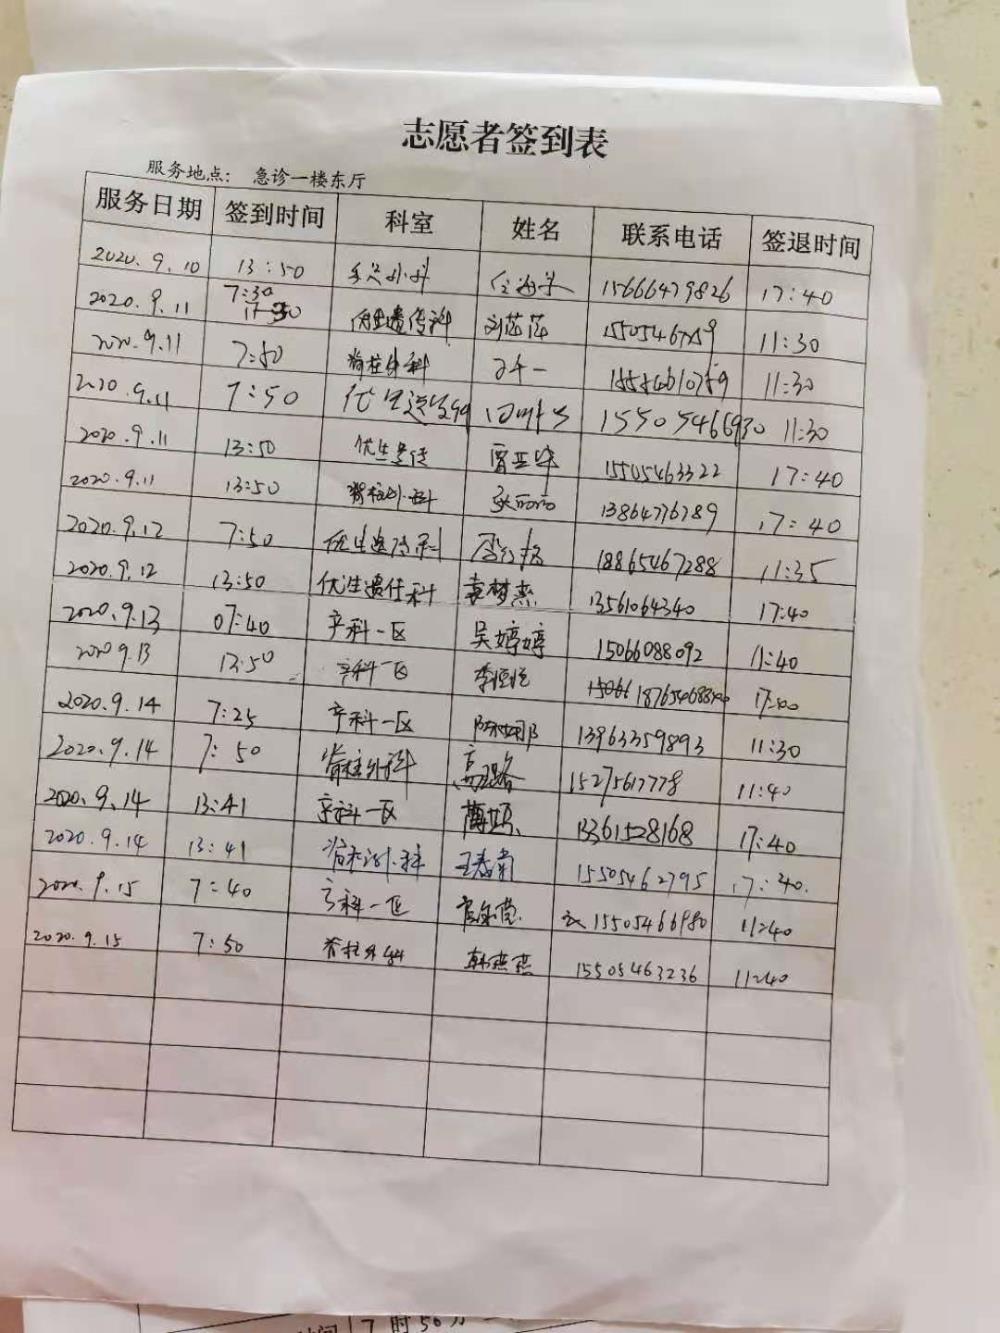 志愿者签到表
服务地点： 急诊一楼东厅
服务日期 签到时间 科室 姓名 联系电话 签退时间
2020.9.10 13:50 15666479826 17:40
2020.9.11 7:30 优生遗传科 刘芯莎 11:30
2020.9.11 7:50 脊柱外科 11:30
2020.9.11 7:50 优生遗传科 15505466930 11:30
2020.9.11 13:50 优生遗传 15505463322 17:40
2020.9.11 13:50 脊柱外科 13864776789 17:40
2020.9.12 7:50 优生遗传科 18865467288 11:35
2020.9.12 13:50 优生遗传科 袁梦燕 13561064340 17:40
2020.9.13 07:40 产科一区 吴婷婷 15066088092 11:40
2020 9.13 13:50 产科一区 17:00
2020.9.14 7:25 产科一区 陈娜 13963359893 11:30
2020.9.14 7:50 脊柱外科 15275617778 11:40
2020.9.14 13:41 产科一区 13361528168 17:40
2020.9.14 13:41 脊柱外科 王春南 15505462795 17:40.
2020.9.15 7:40 产科一区 15505466980 11:40
2020.9.15 7:50 脊柱外科 韩燕燕 15505463236 11:40
7时50分